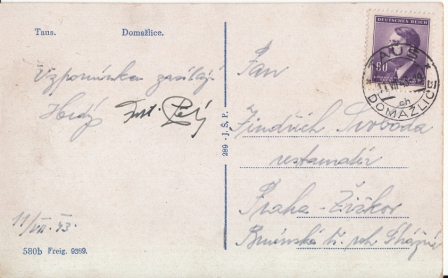 Taus.
Domažlice.
Vzpomínka zasílají
11/VII. 43.
580b Freig. 9389.
289 - J. Š. P.
DEUTSCHES REICH
60
TAUS
DOMAŽLICE
Pan
Jindřich Svoboda
restauratér
Praha - Žižkov
Brněnská